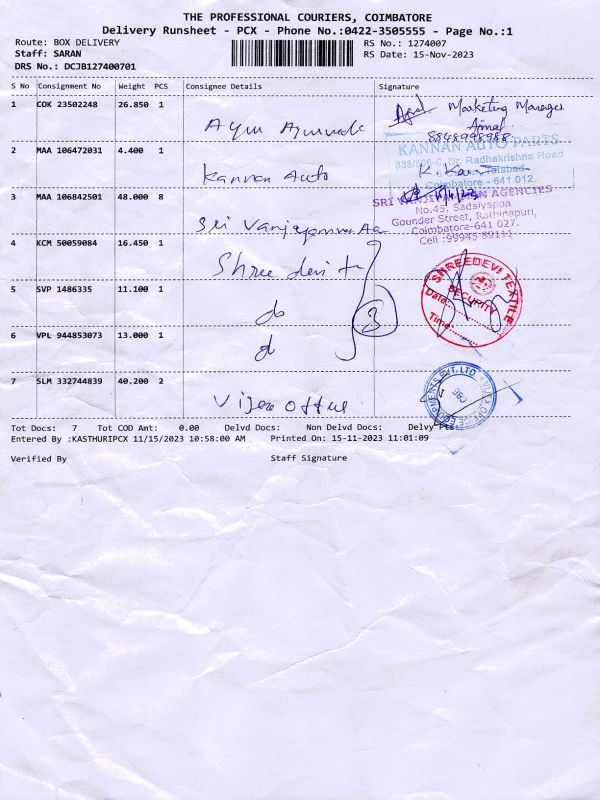 THE PROFESSIONAL COURIERS, COIMBATORE
Delivery Runsheet - PCX - Phone No.:0422-3505555 - Page No.:1
Route: BOX DELIVERY
RS No.: 1274007
Staff: SARAN
RS Date: 15-Nov-2023
DRS No.: DCJB127400701
S No Consignment No Weight PCS Consignee Details Signature
1 COK 23502248 26.850 1
Marketing Manager
Ajmal
8848998988
2 MAA 106472031 4.400 1
Kannan Auto
KANNAN AUTO PARTS
Dr. Radhakrishna Road
Coimbatore - 641 012.
3 MAA 106842501 48.000 8
AGENCIES
No.45, Sadaiyappa
Gounder Street, Rathinapuri,
Coimbatore-641 027.
Cell :99945 89111
4 KCM 50059084 16.450 1
Shree devi tx
SHREEDEVI TEXTILE
SECURITY
Date:
Time:
5 SVP 1486335 11.100 1
do
3
6 VPL 944853073 13.000 1
do
7 SLM 332744839 40.200 2
Tot Docs: 7 Tot COD Amt: 0.00 Delvd Docs: Non Delvd Docs: Delvy Pts:
Entered By :KASTHURIPCX 11/15/2023 10:58:00 AM Printed On: 15-11-2023 11:01:09
Verified By Staff Signature